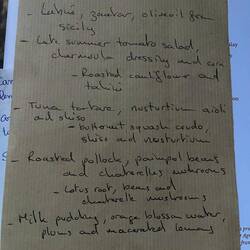 - Labné, zaatar, olive oil from
sicily
- Late summer tomato salad,
charmoula dressing and corn
- Roasted cauliflower and
tahini
- Tuna tartare, nasturtium aioli
and shiso
- butternut squash crudo,
shiso and nasturtium
- Roasted pollock, paimpol beans
and chanterelles mushrooms
- Lotus root, beans and
chanterelle mushrooms
- Milk pudding, orange blossom water,
plums and macerated